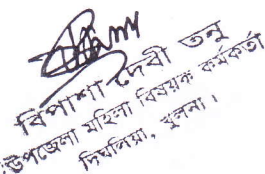 বিপাশা দেবী তনু
উপজেলা মহিলা বিষয়ক কর্মকর্তা
দিঘলিয়া, খুলনা।